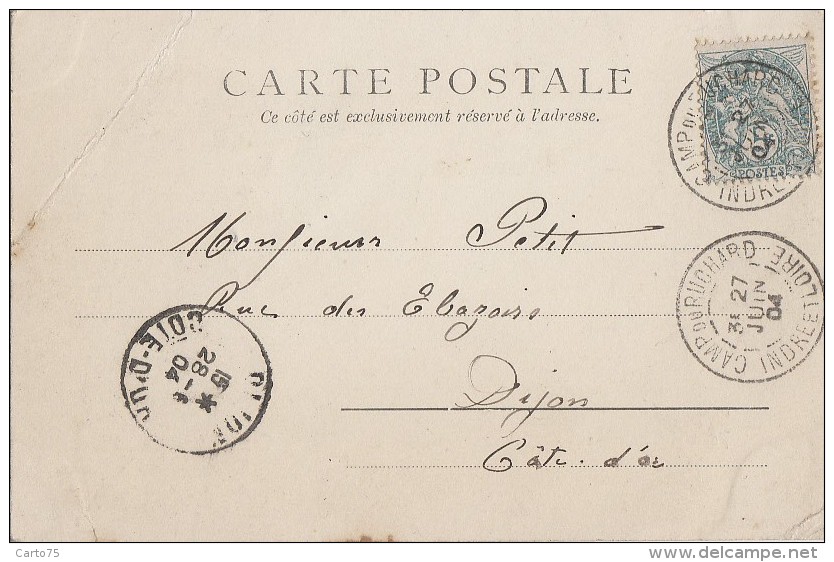 CARTE POSTALE
Ce côté est exclusivement réservé à l'adresse.
POSTES
CAMP DU RUCHARD
27
JUIN
04
INDRE
Monsieur Petit
Rue des
Dijon
Côte-d'or
CAMP DU RUCHARD
3E 27
JUIN
04
INDRE ET LOIRE
DIJON
15
28 - 6
04
COTE-D'OR
Carto75
delcampe.net